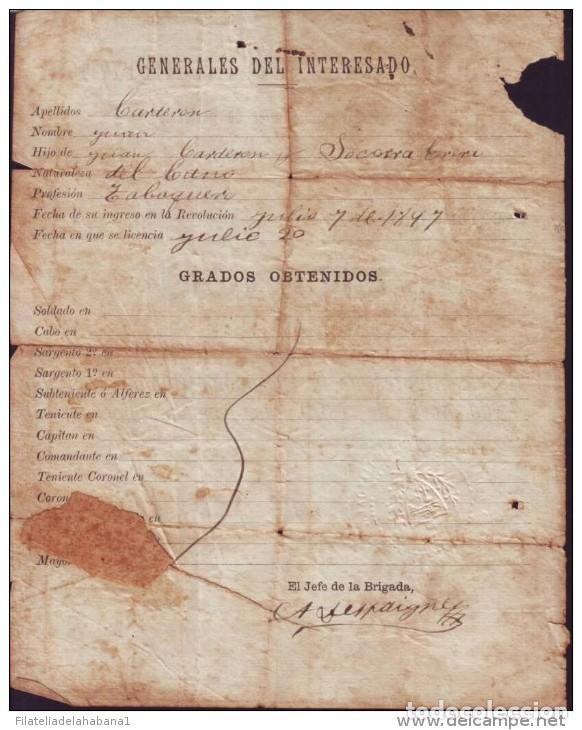 GENERALES DEL INTERESADO.
Apellidos Carderon
Nombre Juan
Hijo de Juan Carderon y Socorra
Naturaleza del Cano
Profesión Tabaquero
Fecha de su ingreso en la Revolución Julio 7 de 1897
Fecha en que se licencia Julio 20
GRADOS OBTENIDOS.
Soldado en
Cabo en
Sargento 2º en
Sargento 1º en
Subteniente ó Alferez en
Teniente en
Capitan en
Comandante en
Teniente Coronel en
Coron
en
Mayo
El Jefe de la Brigada,
A Despaigne
FilateliadelaHabana1
todocoleccion
WWW.DELCAMPE.NET